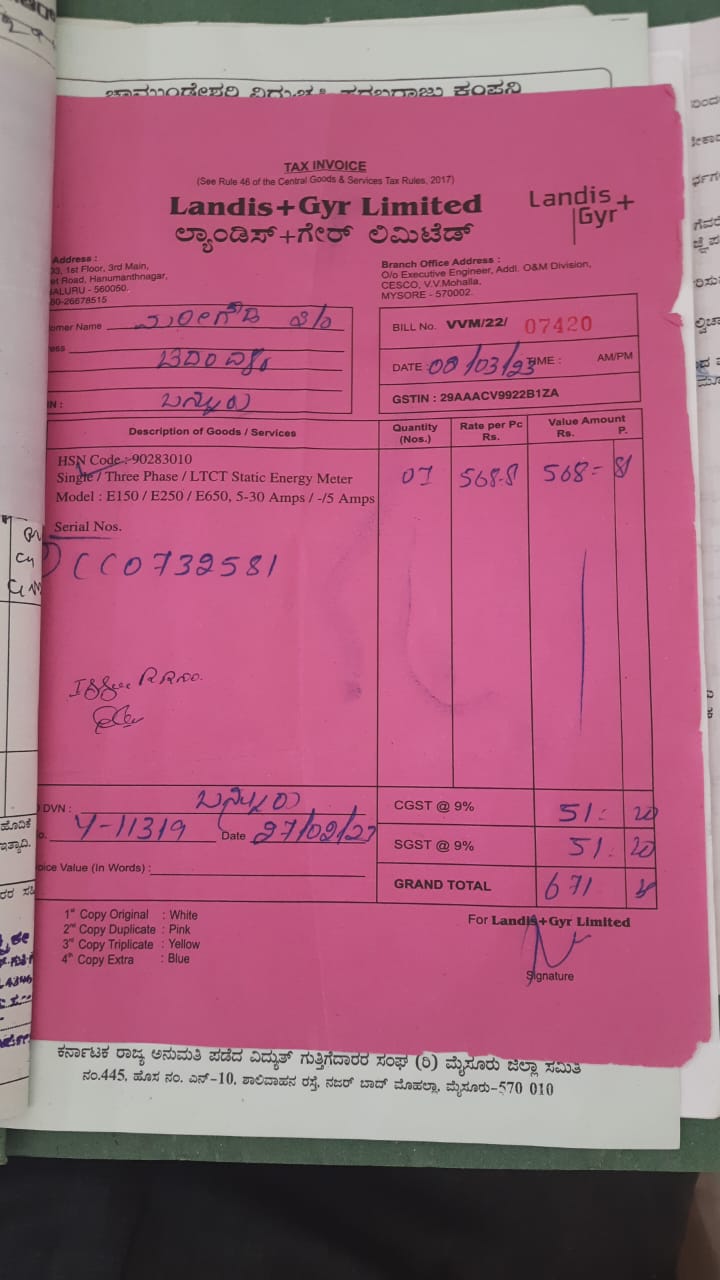 ಚಾಮುಂಡೇಶ್ವರಿ ವಿದ್ಯುಚ್ಛಕ್ತಿ ಸರಬರಾಜು ಕಂಪನಿ
TAX INVOICE
(See Rule 46 of the Central Goods & Services Tax Rules, 2017)
Landis+Gyr Limited
ಲ್ಯಾಂಡಿಸ್+ಗೇರ್ ಲಿಮಿಟೆಡ್
Landis+
Gyr
Address :
1st Floor, 3rd Main,
Road, Hanumanthnagar,
ALURU - 560050.
80-26678515
Branch Office Address :
O/o Executive Engineer, Addl. O&M Division,
CESCO, V.V.Mohalla,
MYSORE - 570002.
omer Name
ess
N :
ಬನ್ನೂರು
BILL No. VVM/22/ 07420
DATE : 08/03/23 TIME : AM/PM
GSTIN : 29AAACV9922B1ZA
Description of Goods / Services
Quantity (Nos.)
Rate per Pc Rs.
Value Amount Rs. P.
HSN Code :-90283010
Single / Three Phase / LTCT Static Energy Meter
Model : E150 / E250 / E650, 5-30 Amps / -/5 Amps
01 568-8 568= 81
Serial Nos.
1) CC0732581
DVN : ಬನ್ನೂರು
o. Y-11319 Date 27/02/23
oice Value (In Words) :
CGST @ 9% 51: 20
SGST @ 9% 51: 20
GRAND TOTAL 671
1st Copy Original : White
2nd Copy Duplicate : Pink
3rd Copy Triplicate : Yellow
4th Copy Extra : Blue
For Landis+Gyr Limited
Signature
ಕರ್ನಾಟಕ ರಾಜ್ಯ ಅನುಮತಿ ಪಡೆದ ವಿದ್ಯುತ್ ಗುತ್ತಿಗೆದಾರರ ಸಂಘ (ರಿ) ಮೈಸೂರು ಜಿಲ್ಲಾ ಸಮಿತಿ
ನಂ.445, ಹೊಸ ನಂ. ಎನ್-10, ಶಾಲಿವಾಹನ ರಸ್ತೆ, ನಜರ್ ಬಾದ್ ಮೊಹಲ್ಲಾ, ಮೈಸೂರು-570 010